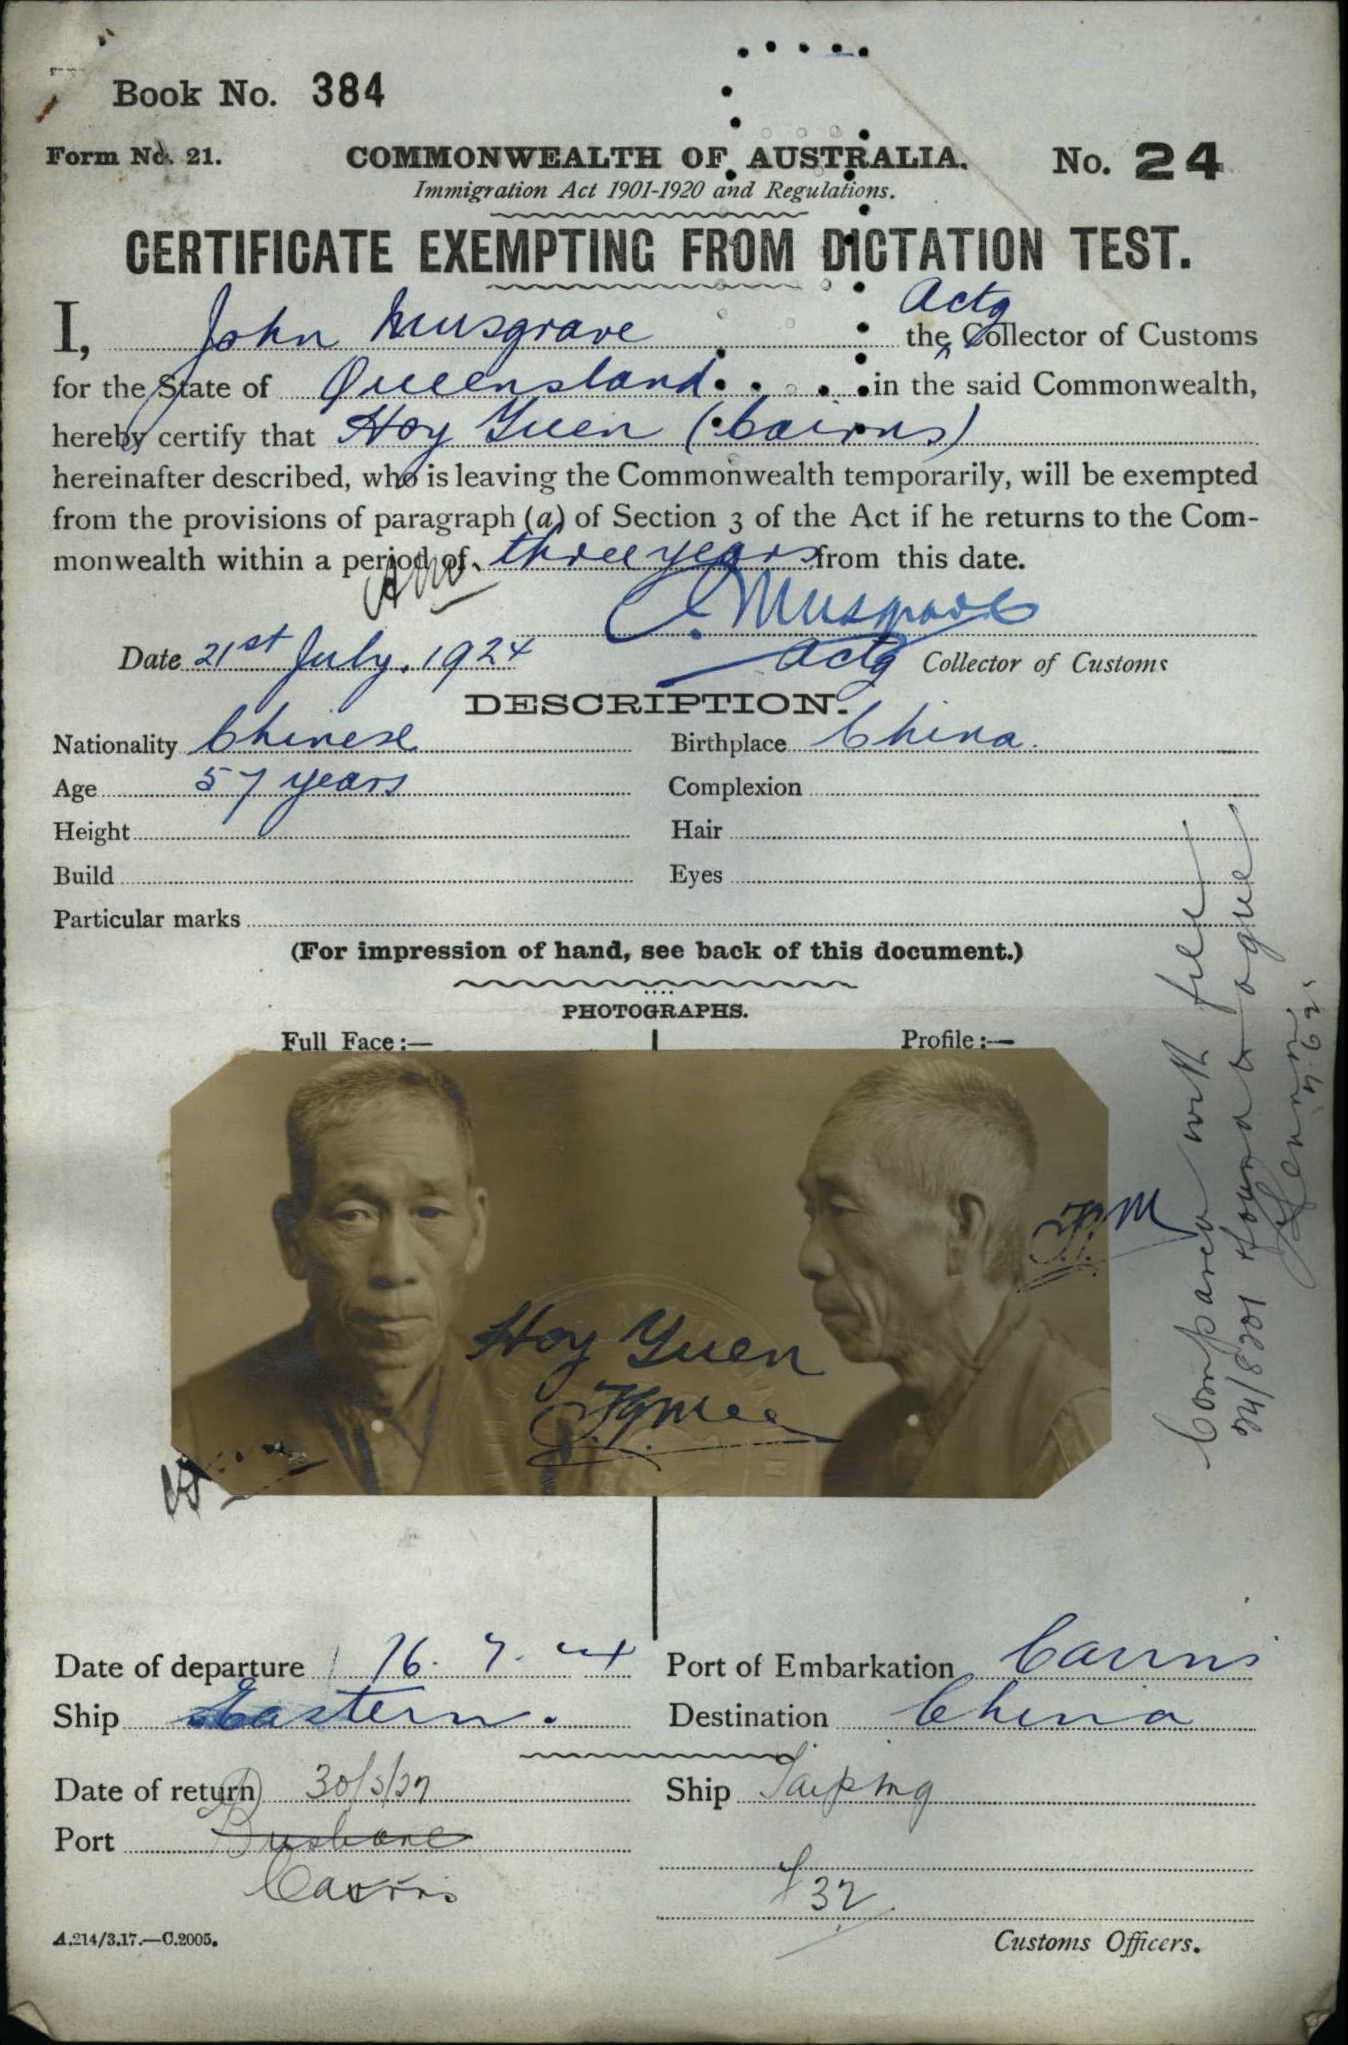 Book No. 384
Form No. 21.
COMMONWEALTH OF AUSTRALIA.
No. 24
Immigration Act 1901-1920 and Regulations.
CERTIFICATE EXEMPTING FROM DICTATION TEST.
Actg
I, John Musgrave the Collector of Customs
for the State of Queensland in the said Commonwealth,
hereby certify that Hoy Yuen (Cairns)
hereinafter described, who is leaving the Commonwealth temporarily, will be exempted
from the provisions of paragraph (a) of Section 3 of the Act if he returns to the Com-
monwealth within a period of three years from this date.
Musgrave
Date 21st July. 1924 Actg Collector of Customs
DESCRIPTION.
Nationality Chinese Birthplace China.
Age 57 years Complexion
Height Hair
Build Eyes
Particular marks
(For impression of hand, see back of this document.)
PHOTOGRAPHS.
Full Face:— Profile:—
Hoy Yuen
Compared with file
24/8201 found to agree
Date of departure 26. 7. 24 Port of Embarkation Cairns
Ship Eastern. Destination China
Date of return 30/5/27 Ship Taiping
Port Brisbane
Cairns
F32
A.214/3.17.—C.2005.
Customs Officers.